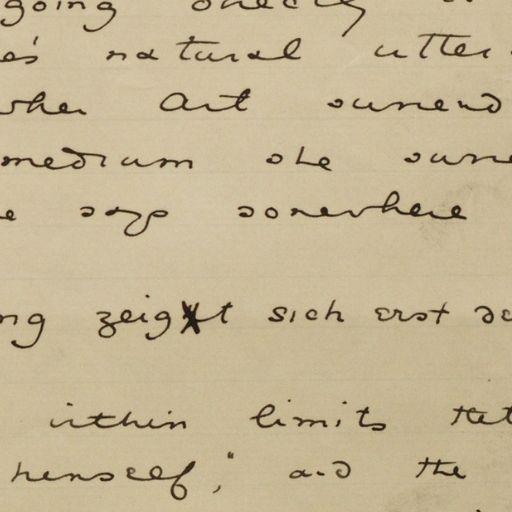 going directly
e's natural utter
when Art surrend
medium she surre
e says somewhere
ng zeigt sich erst de
within limits that
herself," and the